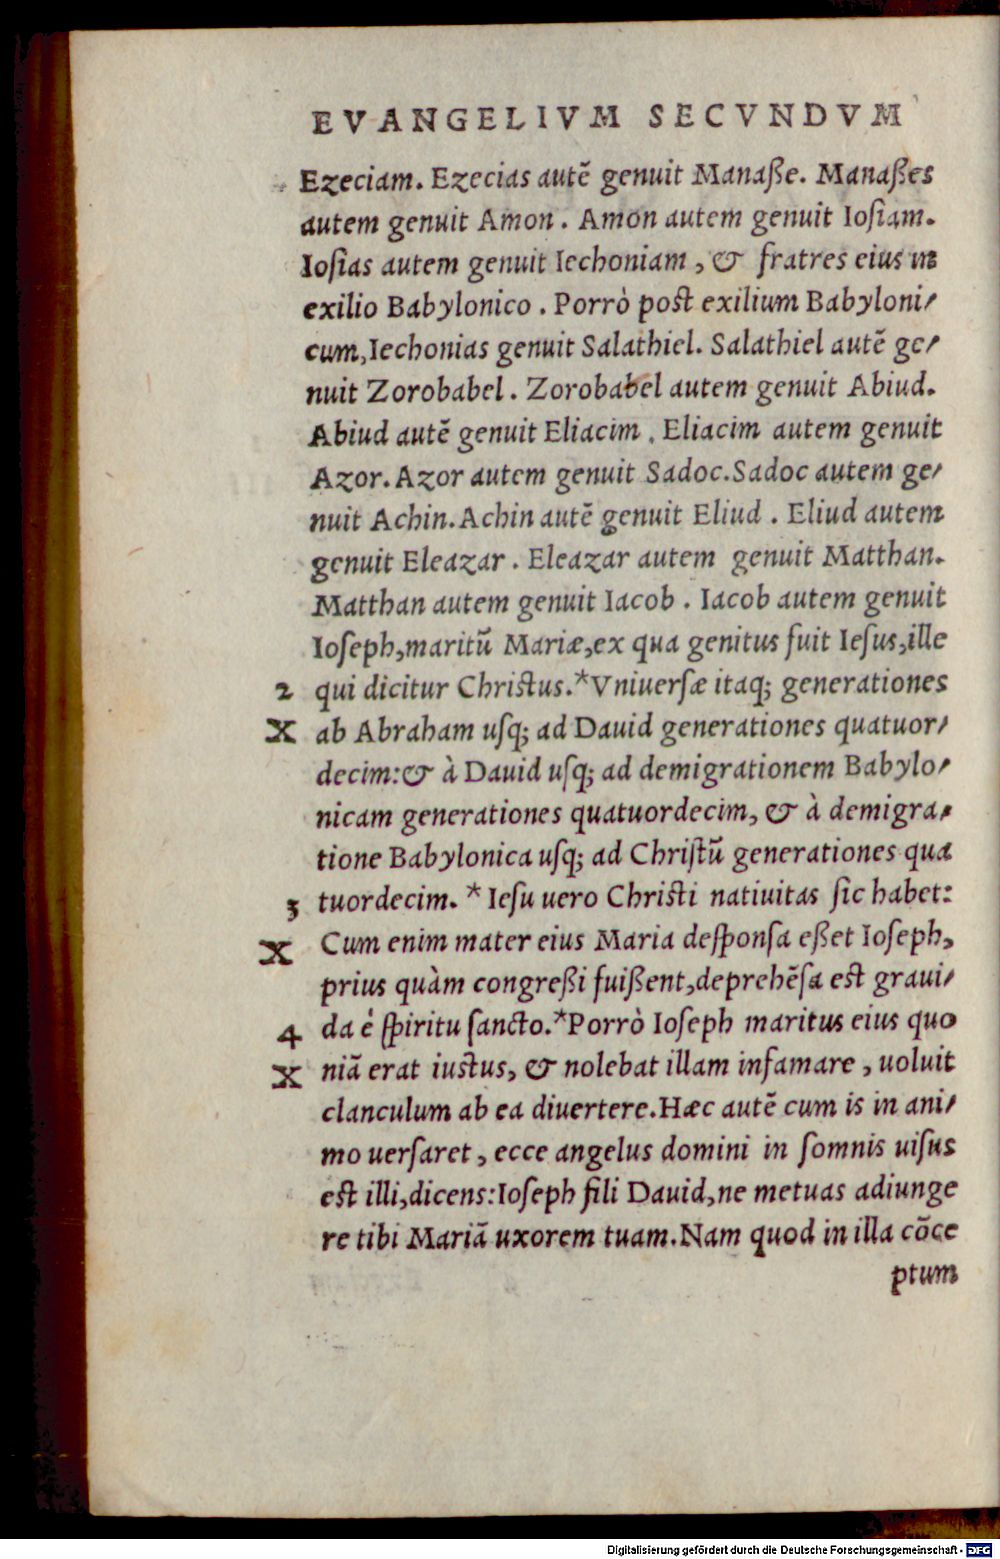 EVANGELIVM SECVNDVM
Ezeciam. Ezecias autē genuit Manaße. Manaßes
autem genuit Amon. Amon autem genuit Ioſiam.
Ioſias autem genuit Iechoniam, & fratres eius in
exilio Babylonico. Porrò poſt exilium Babyloni-
cum, Iechonias genuit Salathiel. Salathiel autē ge-
nuit Zorobabel. Zorobabel autem genuit Abiud.
Abiud autē genuit Eliacim. Eliacim autem genuit
Azor. Azor autem genuit Sadoc. Sadoc autem ge-
nuit Achin. Achin autē genuit Eliud. Eliud autem
genuit Eleazar. Eleazar autem genuit Matthan.
Matthan autem genuit Iacob. Iacob autem genuit
Ioſeph, maritū Mariæ, ex qua genitus fuit Ieſus, ille
2 qui dicitur Chriſtus.*Vniuerſæ itaq; generationes
X ab Abraham uſq; ad Dauid generationes quatuor-
decim: & à Dauid uſq; ad demigrationem Babylo-
nicam generationes quatuordecim, & à demigra-
tione Babylonica uſq; ad Chriſtū generationes qua
3 tuordecim. * Ieſu uero Chriſti natiuitas ſic habet:
X Cum enim mater eius Maria deſponſa eßet Ioſeph,
prius quàm congreßi fuißent, deprehēſa eſt graui-
4 da é ſpiritu ſancto.*Porrò Ioſeph maritus eius quo
X niā erat iuſtus, & nolebat illam infamare, uoluit
clanculum ab ea diuertere. Hæc autē cum is in ani-
mo uerſaret, ecce angelus domini in ſomnis uiſus
eſt illi, dicens: Ioſeph fili Dauid, ne metuas adiunge
re tibi Mariā uxorem tuam. Nam quod in illa cōce
ptum
Digitalisierung gefördert durch die Deutsche Forschungsgemeinschaft - DFG